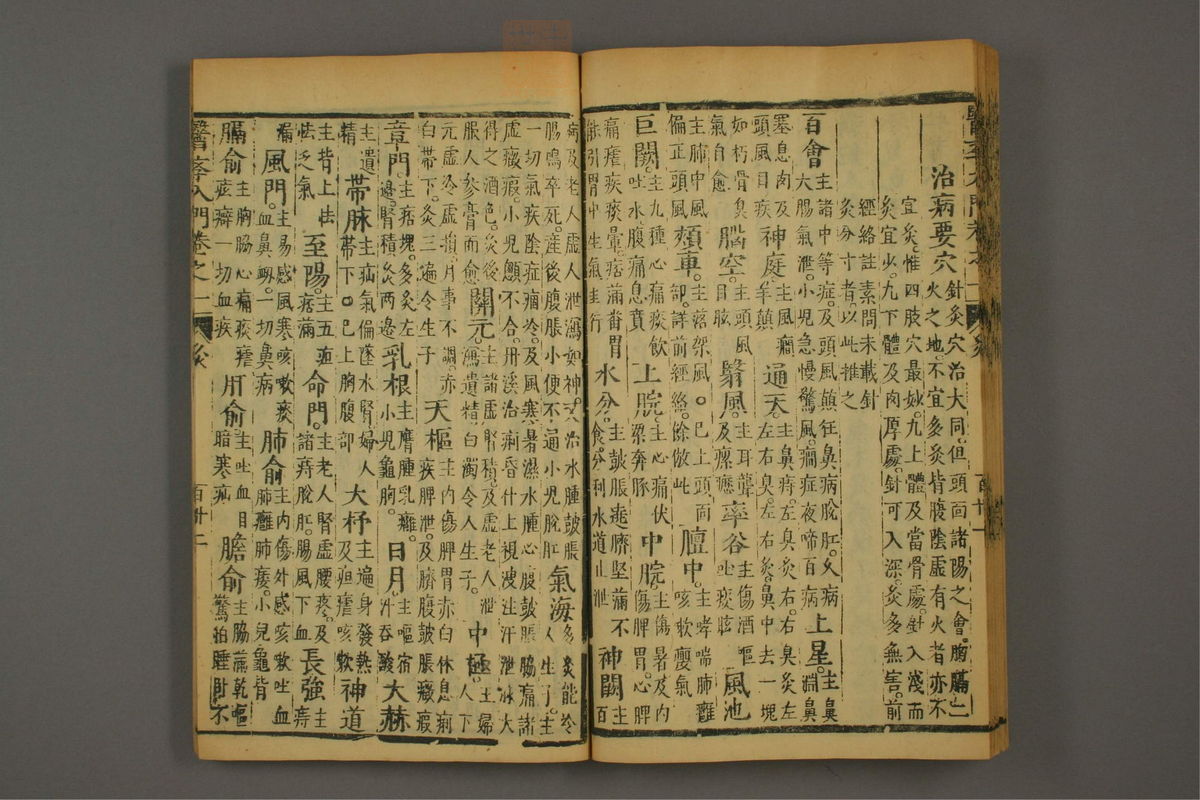 醫學入門卷之一 灸 百廿一
治病要穴 針灸穴治大同。但頭面諸陽之會。胸膈二
火之地。不宜多灸。背腹陰虛有火者亦不
宜灸。惟四肢穴最妙。凡上體及當骨處。針入淺而
灸宜少。凡下體及肉厚處。針可入深。灸多無害。前
經絡註素問未載針
灸分寸者以此推之
百會 主諸中等症。及頭風癲狂鼻病脫肛。久病
大腸氣泄。小兒急慢驚風。癇症夜啼百病 上星 主鼻淵鼻
塞息肉及
頭風目疾 神庭 主風癇羊癲 通天 主鼻痔。左臭灸右。右臭灸左
左右臭。左右灸。鼻中去一塊
如朽骨臭
氣自愈 腦空 主頭風目眩 翳風 主耳聾及瘰癧 率谷 主傷酒嘔吐痰眩 風池
主肺中風
偏正頭風 頰車 主落架風。○已上頭面部。詳前經絡。餘倣此 膻中 主哮喘肺癰咳嗽癭氣
巨闕 主九種心痛痰飲吐水腹痛息賁 上脘 主心痛伏梁奔豚 中脘 主傷暑及內傷脾胃。心脾
痛瘧疾痰暈。痞滿翻胃
能引胃中生氣上行 水分 主鼓脹遶臍堅滿不食。分利水道止泄 神闕 主百
病及老人虛人泄瀉如神。又治水腫鼓脹
腸鳴卒死。產後腹脹小便不通小兒脫肛 氣海 多灸能令人生子。主
一切氣疾陰症痼冷。及風寒暑濕水腫心腹鼓脹脇痛諸
虛癥瘕。小兒顖不合。丹溪治痢昏仆上視溲注汗泄脉大
得之酒色。灸後
服人參膏而愈 關元 主諸虛腎積及虛老人泄瀉遺精白濁令人生子。 中極 主婦人下
元虛冷虛損。月事不調。赤
白帶下。灸三遍令生子 天樞 主內傷脾胃赤白休息痢疾脾泄。及臍腹鼓脹癥瘕
章門 主痞塊。多灸左邊。腎積灸兩邊 乳根 主膺腫乳癰。小兒龜胸。 日月 主嘔宿汁吞酸 大赫
主遺精 帶脉 主疝氣偏墜水腎。婦人帶下。○已上胸腹部 大杼 主遍身發熱及疸瘧咳嗽 神道
主背上怯怯乏氣 至陽 主五疸痞滿 命門 主老人腎虛腰疼。及諸痔脫肛。腸風下血 長強 主痔
漏 風門 主易感風寒咳嗽痰血鼻衂。一切鼻病 肺俞 主內傷外感咳嗽吐血肺癰肺痿。小兒龜背
膈俞 主胸脇心痛痰瘧痃癖一切血疾 肝俞 主吐血目暗寒疝 膽俞 主脇滿乾嘔驚怕睡臥不
醫學入門卷之一 灸 百廿二